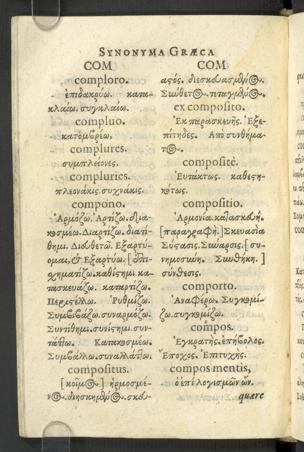 SYNONYMA GRÆCA
COM
comploro.
ἐπιδακρύω. κατα-
κλαίω. συγκλαίω.
compluo.
κατομβρέω.
complures.
συμπλείονες.
complurics.
πλεονάκις. συχνάκις.
compono.
Ἁρμόζω. Ἀρτίζω. δια-
κοσμέω. Διαρτίζω. διατί-
θημι. Διαθετῶ. Ἐξαρτύ-
ομαι, & Ἐξαρτύω. [ἐπι-
σχηματίζω. καθίςημι. κα-
τασκευάζω. καταρτίζω.
Περιςέλλω. Ῥυθμίζω.
Συμβιβάζω. συναρμόζω.
Συντίθημι. συνίςημι. συν-
τάττω. Κατακοσμέω.
Συμβάλλω. συναλλάττω.
compositus.
[κοῖμος] ἡρμοσμέ-
νος. διησκημένος. σκά-
COM
ex composito.
Ἐκ παρασκευῆς. Ἐξε-
πίτηδες. Ἀπὸ συνθήμα-
τος.
compositè.
Εὐτάκτως. καθεςη-
κότως.
compositio.
Ἁρμονία. κατασκευή.
[παραγραφή.] Σκευασία
Σύςασις. Σύναρσις. [συ-
νημοσύνη. Συνθήκη.]
σύνθεσις.
comporto.
Ἀναφέρω. Συγκομί-
ζω. συγκομίζω.
compos.
Ἐγκρατής. ἐπήβολος.
Ἔποχος. Ἐπιτυχής.
compos mentis,
ὁ ἐπὶ λογισμῶν ὤν.
quære